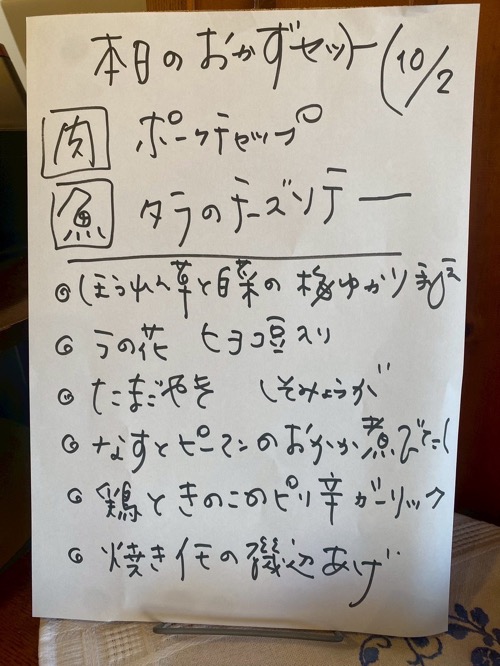 本日のおかずセット (10/2
肉 ポークチャップ
魚 タラのチーズソテー
◎ ほうれん草と白菜の梅ゆかり和え
◎ うの花 ヒヨコ豆入り
◎ たまごやき しそみょうが
◎ なすとピーマンのおかか煮びたし
◎ 鶏ときのこのピリ辛ガーリック
◎ 焼きイモの磯辺あげ